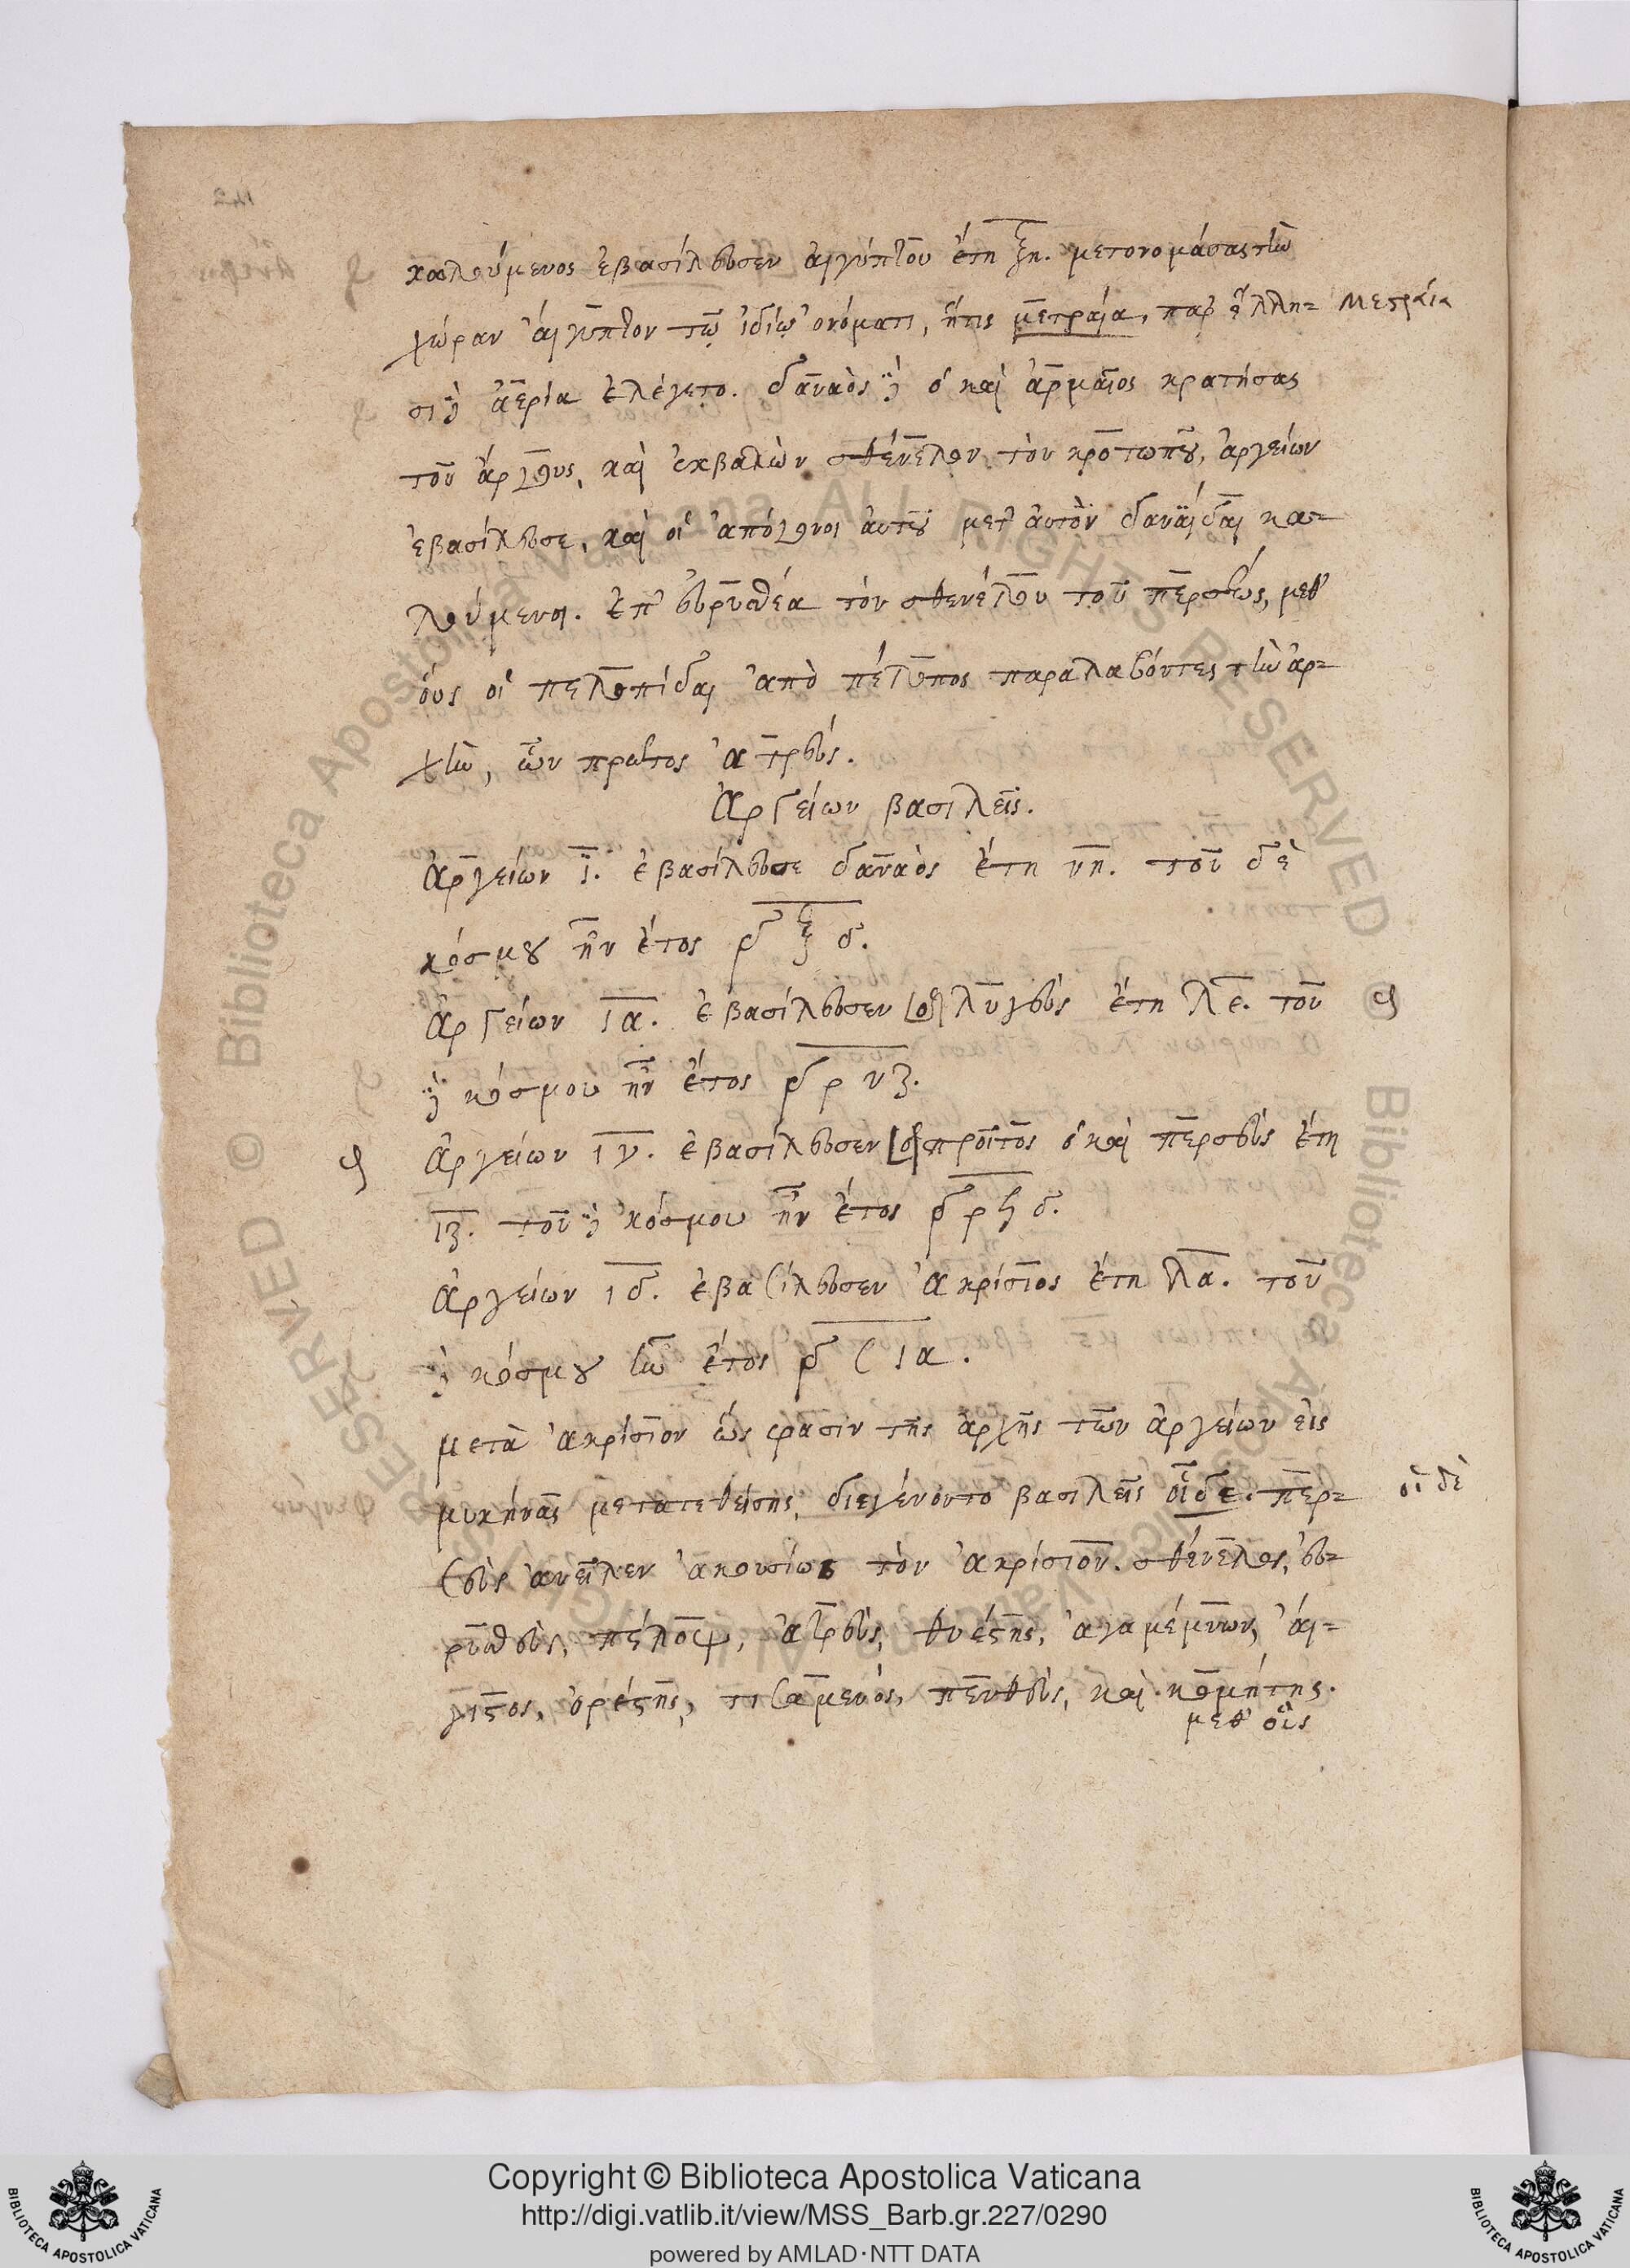 καλούμενος ἐβασίλευσεν αἰγύπτου ἔτη ξη. μετονομάσας τὴν
χώραν αἴγυπτον τῷ ἰδίῳ ὀνόματι, ἥτις μετραία, παρ' ἕλλη= Μεστραία
σι δὲ ἀερία ἐλέγετο. δαναὸς δὲ ὁ καὶ ἁρμαῖος κρατήσας
τοῦ ἄργους, καὶ ἐκβαλὼν σθένελον τὸν κροτωποῦ, ἀργείων
ἐβασίλευσε, καὶ οἱ ἀπόγονοι αὐτοῦ μετ' αὐτὸν δαναΐδαι κα=
λούμενοι. ἐπ' εὐρυσθέα τὸν σθενέλου τοῦ περσέως, μεθ'
οὓς οἱ πελοπίδαι ἀπὸ πέλοπος παραλαβόντες τὴν ἀρ=
χὴν, ὧν πρῶτος ἀτρεύς.
Ἀργείων βασιλεῖς.
Ἀργείων ι. ἐβασίλευσε δαναὸς ἔτη νη. τοῦ δὲ
κόσμου ἦν ἔτος ,δ ξ δ.
Ἀργείων ια. ἐβασίλευσεν λυγεὺς ἔτη λε. τοῦ
δὲ κόσμου ἦν ἔτος ,δ ρ νζ.
Ἀργείων ιγ. ἐβασίλευσεν προῖτος ὁ καὶ περσεὺς ἔτη
ιζ. τοῦ δὲ κόσμου ἦν ἔτος ,δ ρ ϟ δ.
Ἀργείων ιδ. ἐβασίλευσεν ἀκρίσιος ἔτη λα. τοῦ
δὲ κόσμου ἦν ἔτος ,δ σ ια.
μετὰ ἀκρίσιον ὥς φασιν τῆς ἀρχῆς τῶν ἀργείων εἰς
μυκήνας μετατεθείσης, διεγένοντο βασιλεῖς οἵδε. περ= οἱ δὲ
σεὺς ἀνεῖλεν ἀκουσίως τὸν ἀκρίσιον. σθένελος, εὐ=
ρυσθεὺς, πέλοψ, ἀτρεὺς, θυέστης, ἀγαμέμνων, αἴ=
γιστος, ὀρέστης, τισαμενός, πενθεὺς, καὶ κομήτης.
μεθ' οἷς
Copyright © Biblioteca Apostolica Vaticana
http://digi.vatlib.it/view/MSS_Barb.gr.227/0290
powered by AMLAD·NTT DATA